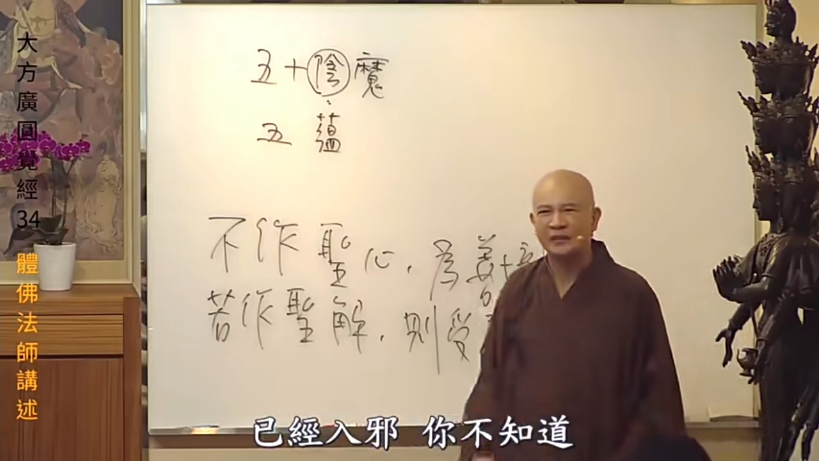 大方廣圓覺經34
體佛法師講述
五十陰魔
五蘊
不作聖心，為善
若作聖解，則受
已經入邪 你不知道